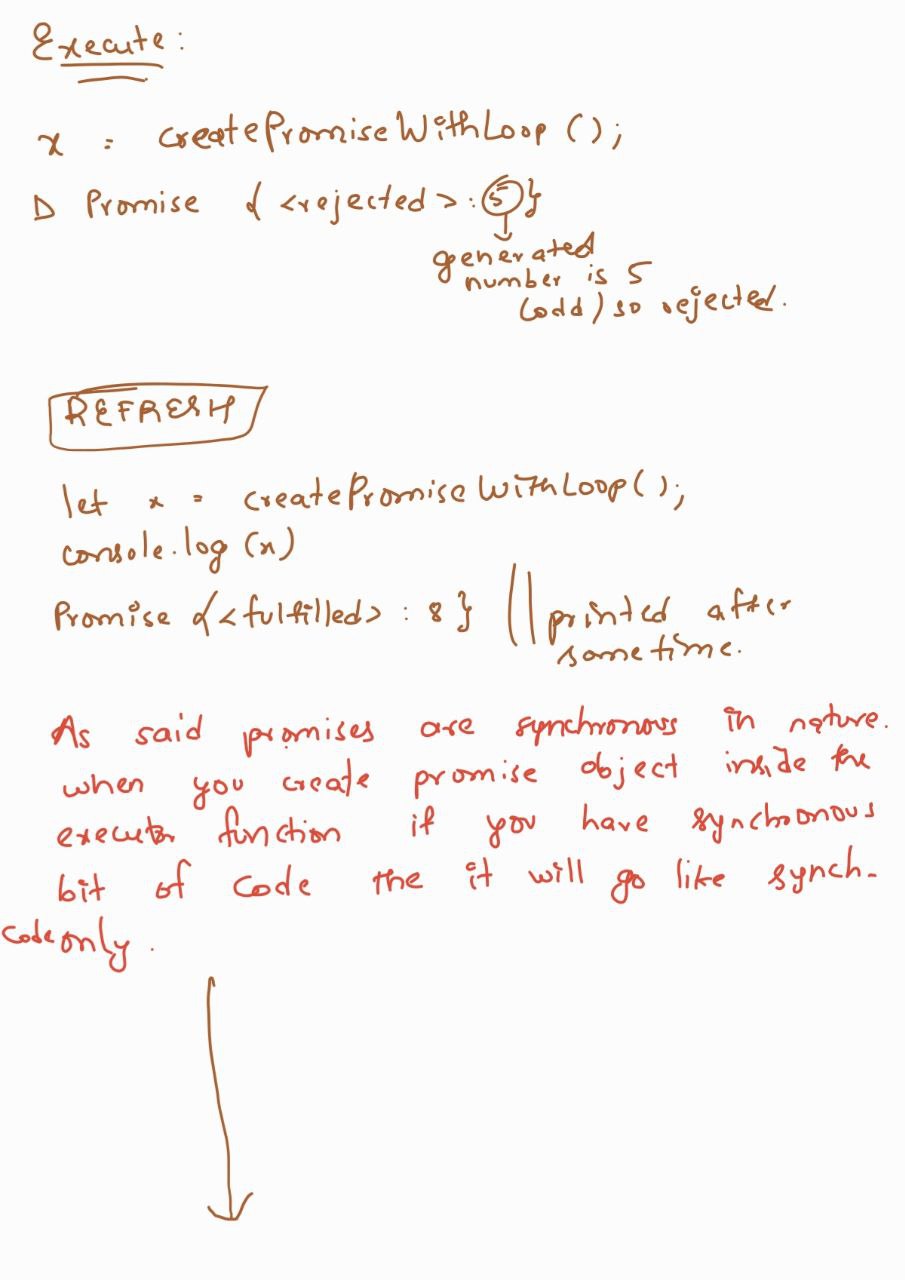 Execute:
x = createPromiseWithLoop();
▷ Promise {<rejected>: 5}
generated
number is 5
(odd) so rejected.
REFRESH
let x = createPromiseWithLoop();
console.log(x)
Promise {<fulfilled> : 8} || printed after
sometime.
As said promises are synchronous in nature.
when you create promise object inside the
executor function if you have synchronous
bit of code the it will go like synch-
code only.